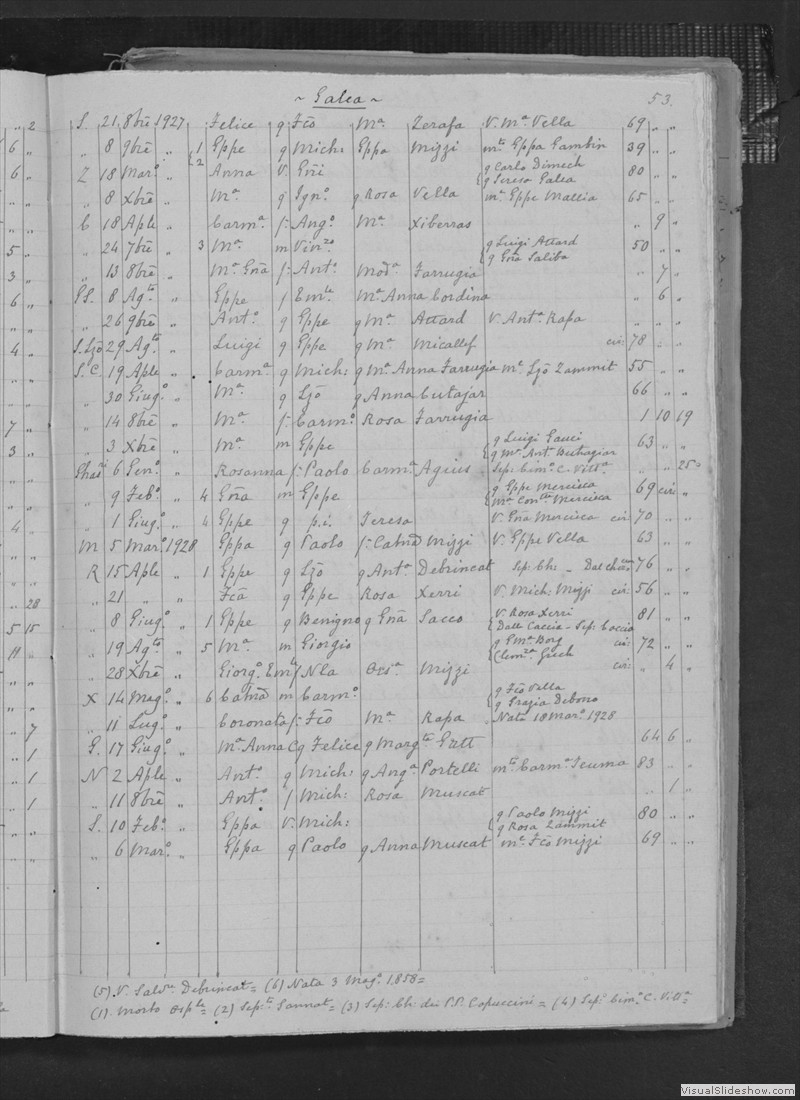 ~ Galea ~ 53.
S. 21 8bre 1927 Felice q Fco Ma Zerafa V. Ma Vella 69 " "
" 8 9bre " 1 Eppe q Mich: Eppa Mizzi mto Eppa Gambin 39 " "
Z 18 Maro " 2 Anna V. Gni { q Carlo Dimech q Teresa Galea 80 " "
" 8 Xbre " Ma q Igno q Rosa Vella ma Eppe Mallia 65 " "
C 18 Aple " Carma f: Ango Ma Xiberras " 9 "
" 24 7bre " 3 Ma m Vinzo { q Luigi Attard q Gna Saliba 50 " "
" 13 8bre " Ma Gna f: Anto Moda Farrugia " 7 "
" 8 Agto " Eppe f Emle Ma Anna Cordina " 6 "
" 26 9bre " Anto q Eppe q Ma Attard V. Anta Rapa " " "
S.Ljo 29 Agto " Luigi q Eppe q Ma Micallef cir: 78 " "
S.C. 19 Aple " Carma q Mich: q Ma Anna Farrugia ma Ljo Zammit 55 " "
" 30 Giugo " Ma q Ljo q Anna Cutajar 66 " "
" 14 8bre " Ma f: Carmo Rosa Farrugia 1 10 19
" 3 Xbre " Ma m Eppe { q Luigi Gauci q Ma Anta Buttigiar 63 " "
Ghas 6 Geno " Rosanna f: Paolo Carma Agius Sep: Cimo C. Vitta " " 25=
" 9 Febo " 4 Gna m Eppe { q Eppe Mercieca Ma Conta Mercieca 69 cir: "
" 1 Giugo " 4 Eppe q p.i. Teresa V. Gna Mercieca cir: 70 " "
M 5 Maro 1928 Eppa q Paolo f: Catna Mizzi V. Eppe Vella 63 " "
R 15 Aple " 1 Eppe q Ljo q Anta Debrincat Sep: Ch: 76 "
" 21 " " Fca q Eppe Rosa Xerri V. Mich: Mizzi cir: 56 " "
" 8 Giugo " 1 Eppe q Benigno q Gna Sacco { V. Rosa Xerri Dalle Caccia - Sep: Caccia 81 " "
" 19 Agto " 5 Ma m Giorgio { q Gma Borg Clema Grech cir: 72 " "
" 28 Xbre " Giorgo Eml f Nla Orsa Mizzi cir: " 4 "
X 14 Mago " 6 Catna m Carmo { q Fco Vella q Grazia Debono
" 11 Lugo " Coronata f: Fco Ma Rapa Nata 18 Maro 1928
G. 17 Giugo " Ma Anna C q Felice q Margta Gatt 64 6 "
N 2 Aple " Anto q Mich: q Anga Portelli mto Carma Scuma 83 " "
" 11 8bre " Anto f Mich: Rosa Muscat " 1 "
S. 10 Febo " Eppa V. Mich: { q Paolo Mizzi q Rosa Zammit 80 " "
" 6 Maro " Eppa q Paolo q Anna Muscat ma Fco Mizzi 69 " "
(5) V. Salva Debrincat = (6) Nata 3 Mago 1858 =
(1) Morto Osple = (2) Septa Sannat = (3) Sep: Ch: dei P.P. Capuccini = (4) Sep: Cimo C. Vitta =
VisualSlideshow.com